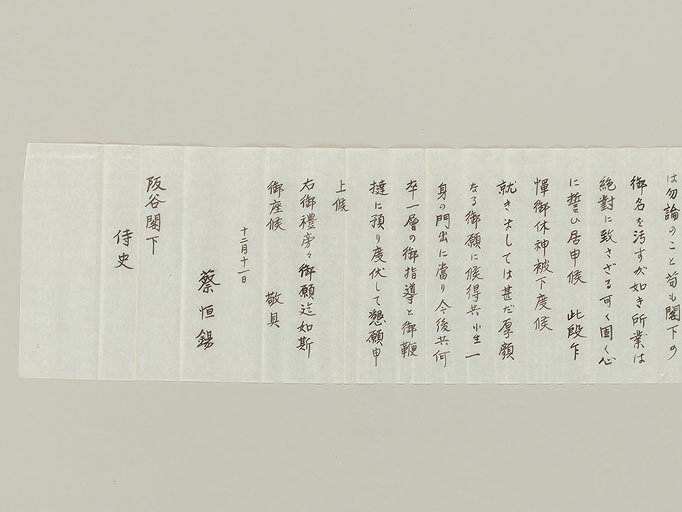 は勿論のこと苟も閣下の
御名を汚すが如き所業は
絶對に致さざる可く固く心
に誓ひ居申候 此段乍
憚御休神被下度候
就きましては甚だ厚顔
なる御願に候得共小生一
身の門出に當り今後共何
卒一層の御指導と御鞭
撻に預り度伏して懇願申
上候
右御禮旁々御願迄如斯
御座候 敬具
十二月十一日
蔡恒錫
阪谷閣下
侍史